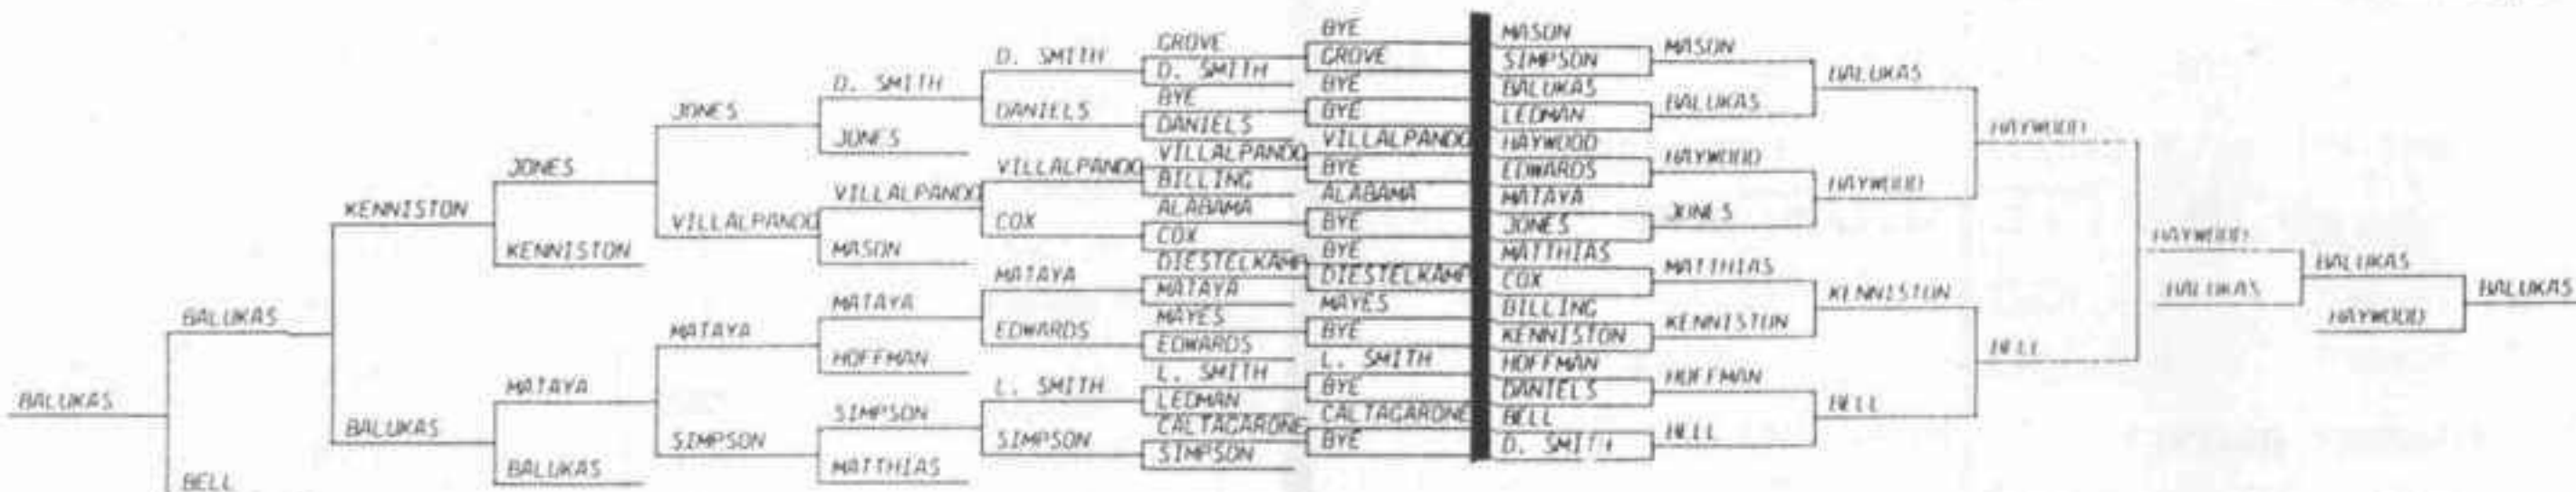 BALUKAS
BALUKAS
BELL
KENNISTON
BALUKAS
JONES
KENNISTON
MATAYA
BALUKAS
JONES
VILLALPANDO
MATAYA
SIMPSON
D. SMITH
JONES
VILLALPANDO
MASON
MATAYA
HOFFMAN
SIMPSON
MATTHIAS
D. SMITH
DANIELS
VILLALPANDO
COX
MATAYA
EDWARDS
L. SMITH
SIMPSON
GROVE
D. SMITH
BYE
DANIELS
VILLALPANDO
BILLING
ALABAMA
COX
DIESTELKAMP
MATAYA
MAYES
EDWARDS
L. SMITH
LEDMAN
CALTAGARONE
SIMPSON
BYE
GROVE
BYE
BYE
VILLALPANDO
BYE
ALABAMA
BYE
BYE
DIESTELKAMP
MAYES
BYE
L. SMITH
BYE
CALTAGARONE
BYE
MASON
SIMPSON
BALUKAS
LEDMAN
HAYWOOD
EDWARDS
MATAYA
JONES
MATTHIAS
COX
BILLING
KENNISTON
HOFFMAN
DANIELS
BELL
D. SMITH
MASON
BALUKAS
HAYWOOD
JONES
MATTHIAS
KENNISTON
HOFFMAN
BELL
BALUKAS
HAYWOOD
KENNISTON
BELL
HAYWOOD
BELL
HAYWOOD
BALUKAS
BALUKAS
HAYWOOD
BALUKAS